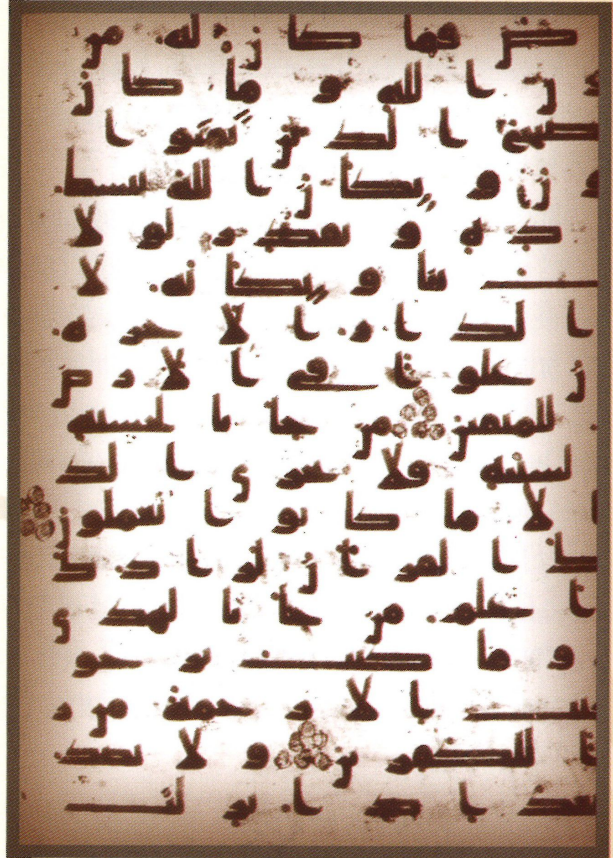 رض فما كان له من
دون الله وما كان
صبح الذين تمنوا
ون ويكأن الله يبسط
عباده ويقدر لولا
بنا ويكأنه لا
الدار الاخرة
ن علوا في الارض
للمتقين من جا بالحسنة
بالسيئة فلا يجزى الذ
الا ما كانوا يعملون
القران لرادك
اعلم من جا بالهدى
وما كنت ترجو
الا رحمة من ر
ا للكفرين ولا يصد
بعد اذ انزلت